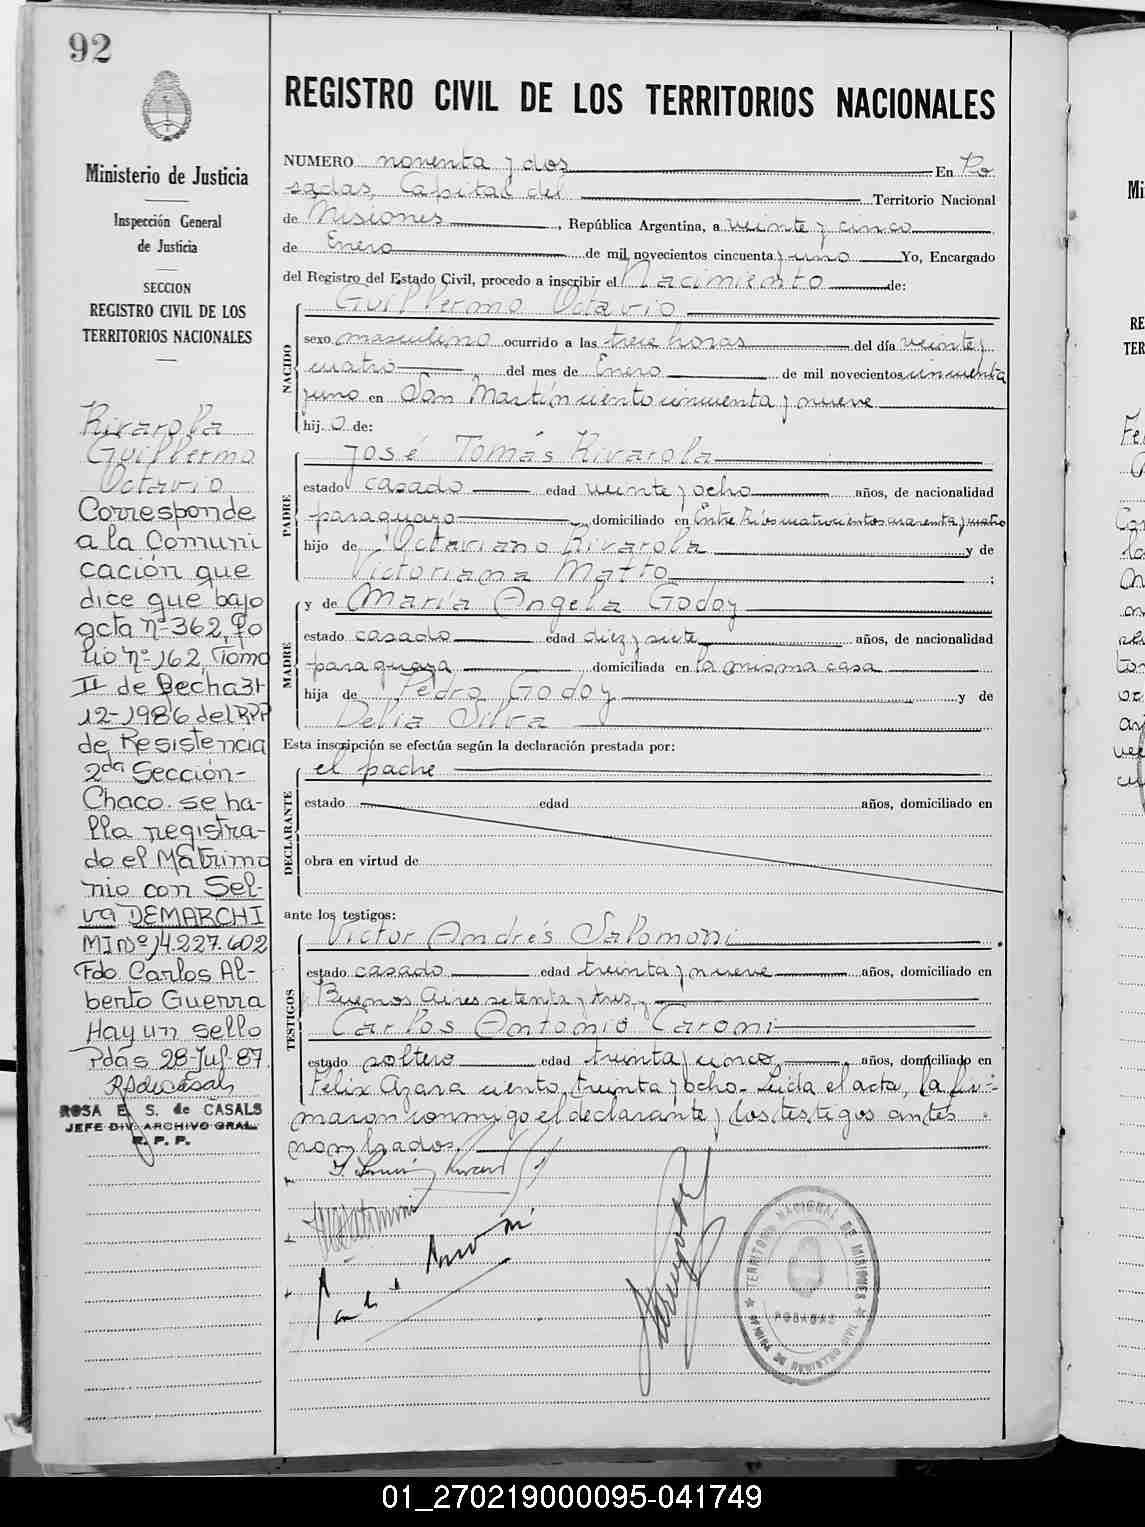 92
Ministerio de Justicia
Inspección General
de Justicia
SECCION
REGISTRO CIVIL DE LOS
TERRITORIOS NACIONALES
Rivarola
Guillermo
Octavio
Corresponde
a la Comuni
cación que
dice que bajo
acta nº 362, Fo
lio nº 162, Tomo
II de Fecha 31
12-1986 del RPP
de Resistencia
2da Sección-
Chaco. se ha-
lla registra-
do el Matrimo
nio con Sel-
va DEMARCHI
MI Nº 14.227.602
Fdo. Carlos Al-
berto Guerra
Hay un sello
Pdas 28-Jul-87.
RAdeCasals
ROSA E. S. de CASALS
JEFE DIV. ARCHIVO GRAL.
R. P. P.
REGISTRO CIVIL DE LOS TERRITORIOS NACIONALES
NUMERO noventa y dos En Po
sadas, Capital del Territorio Nacional
de Misiones, República Argentina, a veinte y cinco
de Enero de mil novecientos cincuenta y uno Yo, Encargado
del Registro del Estado Civil, procedo a inscribir el Nacimiento de:
NACIDO
Guillermo Octavio
sexo masculino ocurrido a las trece horas del día veinte y
cuatro del mes de Enero de mil novecientos cincuenta
y uno en San Martín ciento cincuenta y nueve
hij o de:
PADRE
José Tomás Rivarola
estado casado edad veinte y ocho años, de nacionalidad
paraguayo domiciliado en Entre Ríos cuatrocientos cuarenta y cuatro
hijo de Octaviano Rivarola y de
Victoriana Matto ;
MADRE
y de María Angela Godoy
estado casado edad diez y siete años, de nacionalidad
paraguaya domiciliada en la misma casa
hija de Pedro Godoy y de
Delia Silva
Esta inscripción se efectúa según la declaración prestada por:
DECLARANTE
el padre
estado edad años, domiciliado en
obra en virtud de
ante los testigos:
TESTIGOS
Victor Andrés Salomoni
estado casado edad treinta y nueve años, domiciliado en
Buenos Aires setenta y tres y
Carlos Antonio Caroni
estado soltero edad treinta y cinco años, domiciliado en
Félix Azara ciento treinta y ocho- Leída el acta, la fir-
maron conmigo el declarante y los testigos antes
nombrados.
TERRITORIO NACIONAL DE MISIONES
POSADAS
OFICINA DE REGISTRO CIVIL
01_270219000095-041749